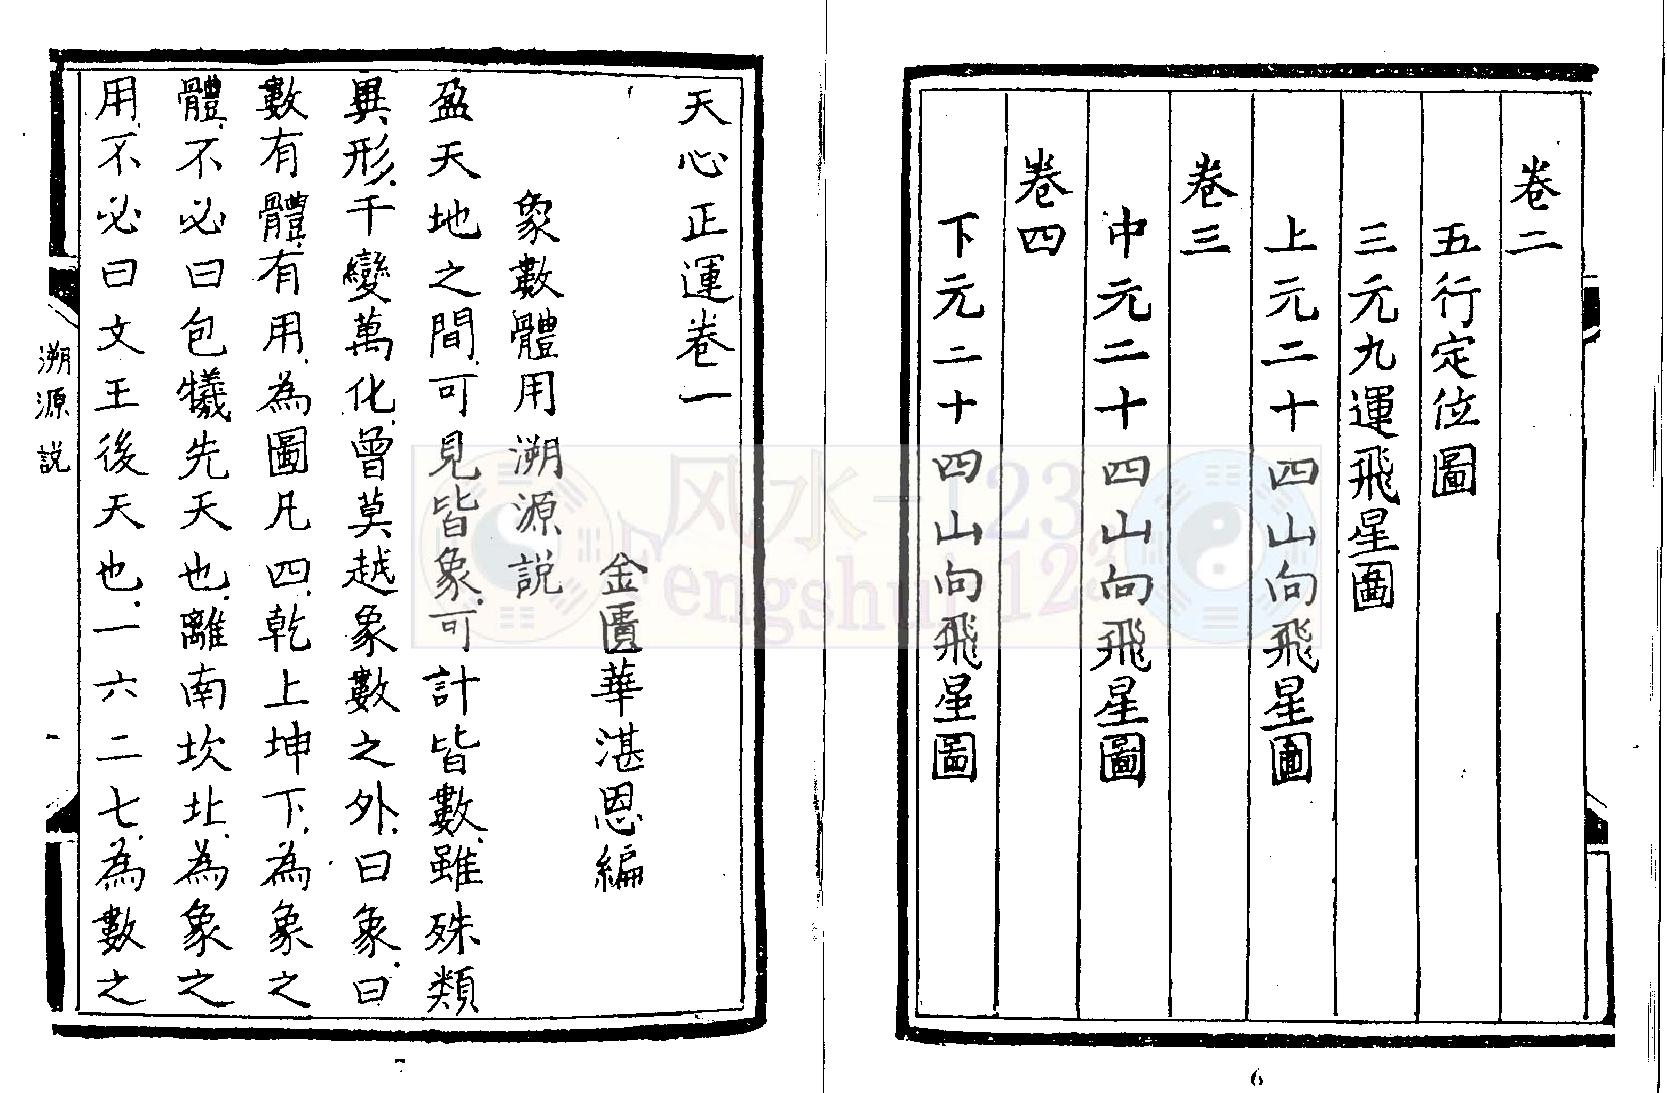 卷二
五行定位圖
三元九運飛星圖
上元二十四山向飛星圖
卷三
中元二十四山向飛星圖
卷四
下元二十四山向飛星圖
6
天心正運卷一
金匱華湛恩編
象數體用溯源説
盈天地之間.可見皆象.可計皆數.雖殊類
異形.千變萬化.曾莫越象數之外.曰象.曰
數有體.有用.為圖凡四.乾上坤下.為象之
體.不必曰包犧先天也.離南坎北.為象之
用.不必曰文王後天也.一六二七.為數之
溯源説
一
7
风水-123
Fengshui-123